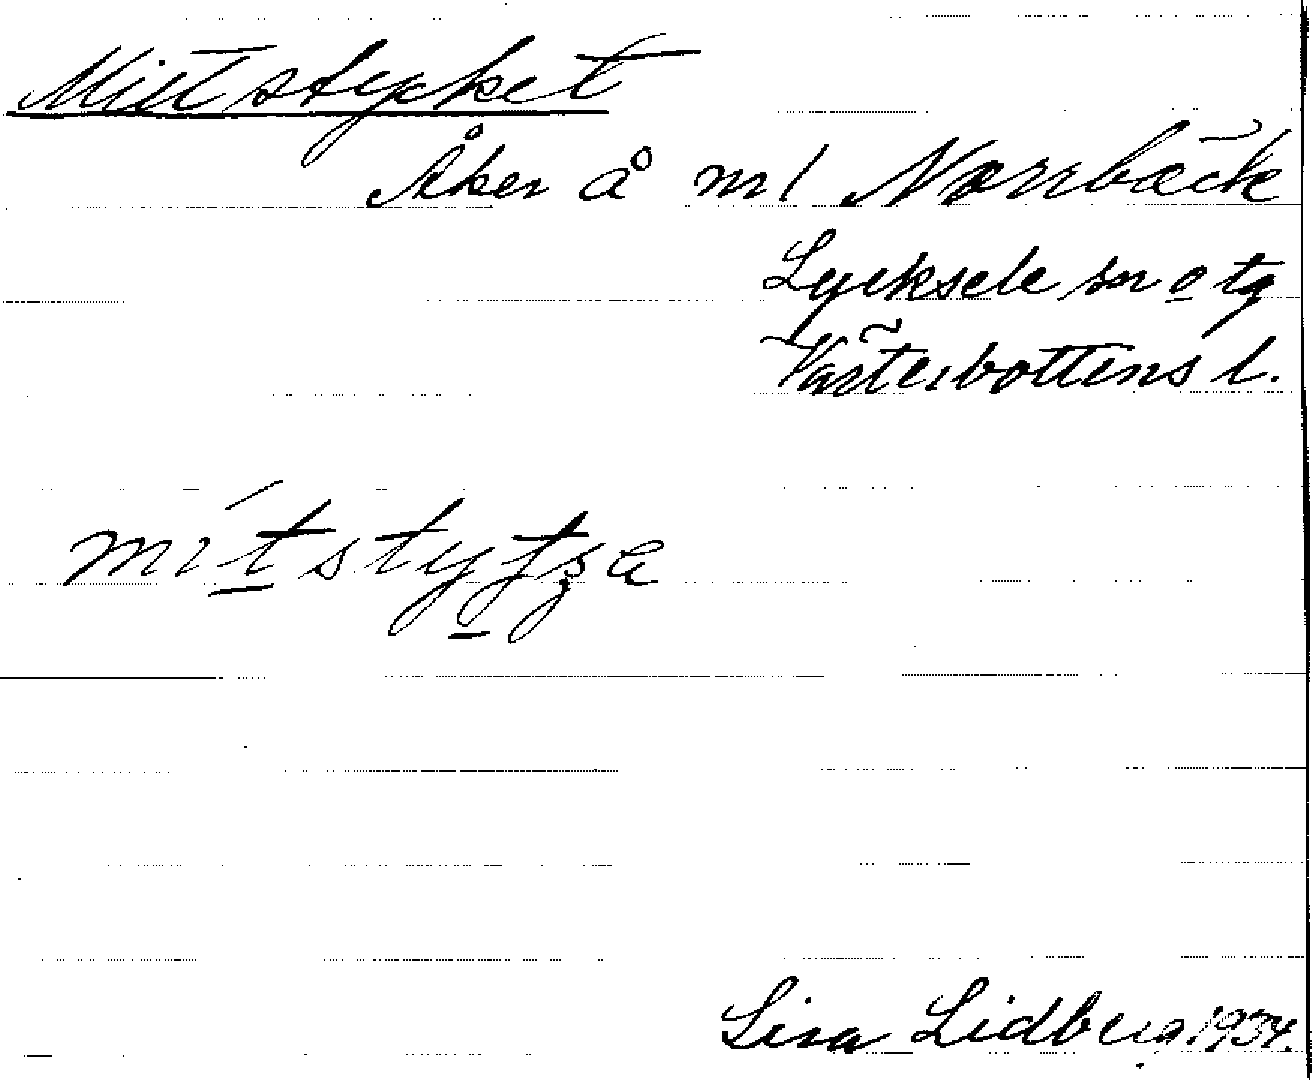 Mittstycket
Åker å nr 1 Norrbäck
Lycksele sn o tg
Västerbottens l.
Lisa Lidberg. 1934.